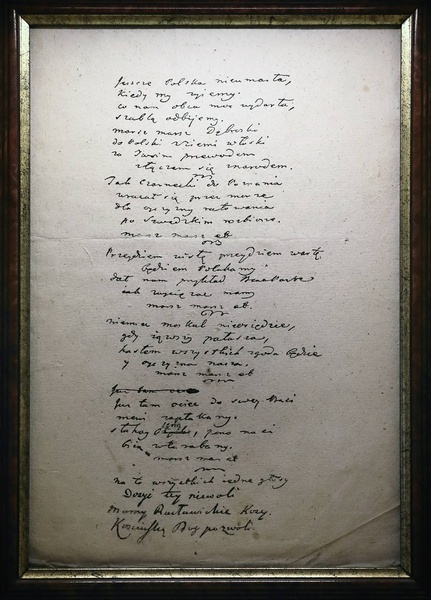 Jeszcze Polska nieumarła,
kiedy my żyiemy.
co nam obca moc wydarła,
szablą odbijemy.
marsz marsz Dąbroski
do Polski z ziemi włoski
za Twoim przewodem
złączem się z narodem.
Jak Czarnecki do Poznania
wracał się przez morze
dla oyczyzny ratowania
po Szwedzkim rozbiorze.
marsz marsz etc
Przejdziem wisłę przejdziem wartę
będziem Polakami
dał nam przykład Bonaparte
jak zwyciężać mamy
marsz marsz etc.
niemiec moskal nieosiędzie,
gdy iąwszy pałasza,
hasłem wszystkich zgoda będzie
y oyczyzna nasza.
marsz marsz etc
Już tam ociec
Już tam ociec do swey Basi
mówi zapłakany.
słuchay jeno, pono nasi
biią w tarabany.
marsz marsz etc
na to wszystkich iedne głosy
Dosyć tey niewoli
mamy Racławickie Kosy.
Kościuszkę Bóg pozwoli.